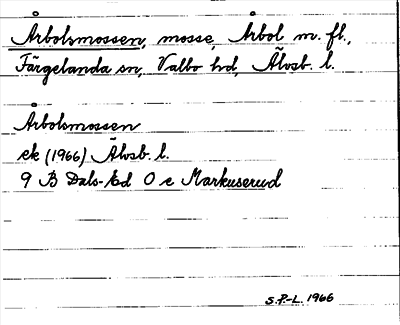 Årbolsmossen, mosse, Årbol m. fl.,
Färgelanda sn, Valbo hd, Älvsb. l.
Årbolsmossen
ek (1966) Älvsb. l.
9 B Dals-Ed O e Markuserud
S.P.-L. 1966